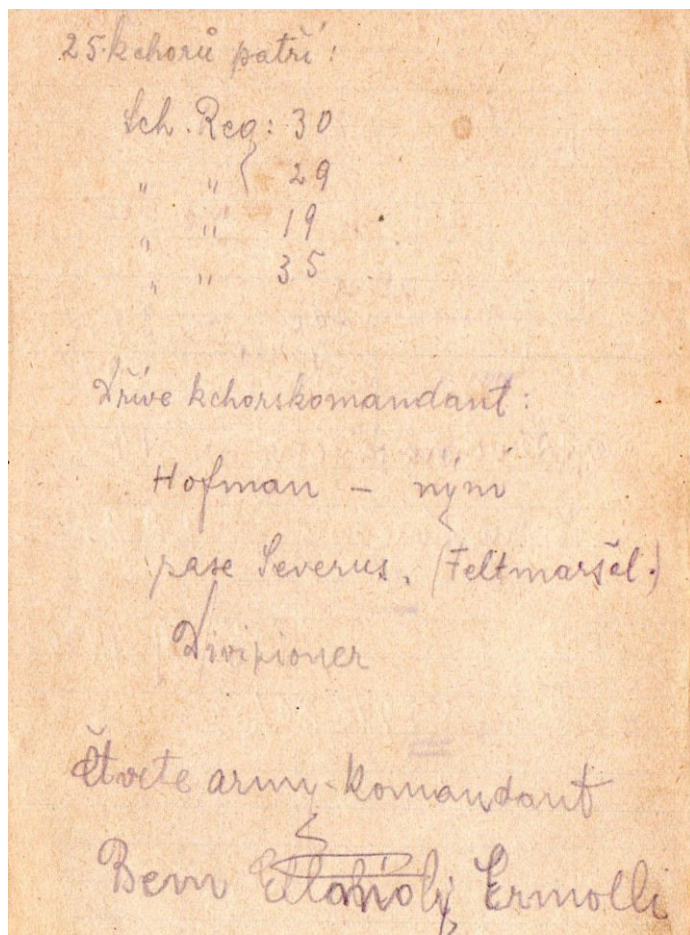 25. kchorů patří:
Sch. Reg: 30
" " 29
" " 19
" " 35
Dříve kchorskomandant:
Hofman – ným
pase Severus. (Feltmaršél.)
Divisioner
Čtvrte army-komandant
Bem Ermolli